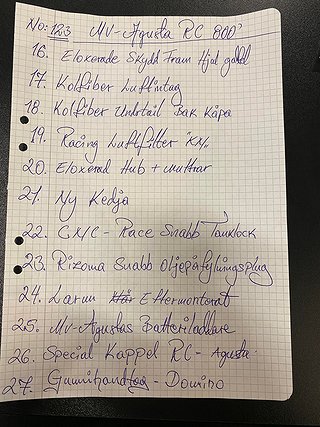 No: 133 MV-Agusta RC 800'
16. Eloxerade Skydd Fram Hjul gadd
17. Kolfiber Luftintag
18. Kolfiber Undertail Bak Kåpa
19. Racing Luftfilter
20. Eloxerad Hub + muttrar
21. Ny Kedja
22. CNC - Race Snabb Tanklock
23. Rizoma Snabb Oljepåfylningsplug
24. Larm Eftermonterat
25. MV-Agustas Batteriladdare
26. Special Kappel RC - Agusta
27. Gummihandtag - Domino